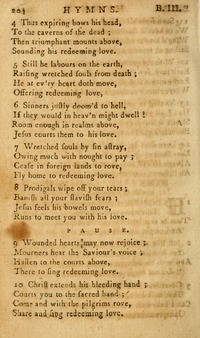 204 HYMNS. B. III.
4 Thus expiring bows his head,
To the caverns of the dead;
Then triumphant mounts above,
Sounding his redeeming love.
5 Still he labours on the earth,
Raising wretched souls from death;
He at ev'ry heart doth move,
Offering redeeming love,
6 Sinners justly doom'd to hell,
If they would in heav'n might dwell!
Room enough in realms above,
Jesus courts them to his love.
7 Wretched souls by sin astray,
Owing much with nought to pay;
Cease in foreign lands to rove,
Fly home to redeeming love.
8 Prodigals wipe off your tears;
Banish all your slavish fears;
Jesus feels his bowels move,
Runs to meet you with his love.
PAUSE.
9 Wounded hearts may now rejoice;
Mourners hear the Saviour's voice;
Hasten to the courts above,
There to sing redeeming love.
10 Christ extends his bleeding hand;
Courts you to the sacred band;
Come and with the pilgrims rove,
Share and sing redeeming love.